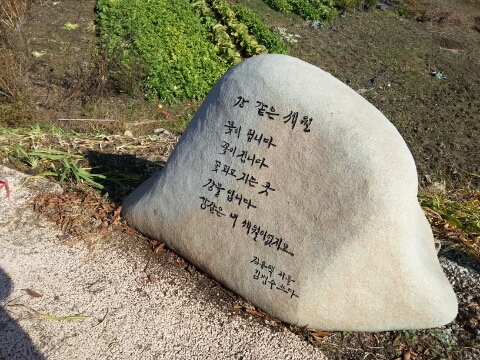 강 같은 세월
꽃이 핍니다
꽃이 집니다
꽃 피고 지는 곳
강물입니다
강같은 내 세월이었지요
김용택 지음